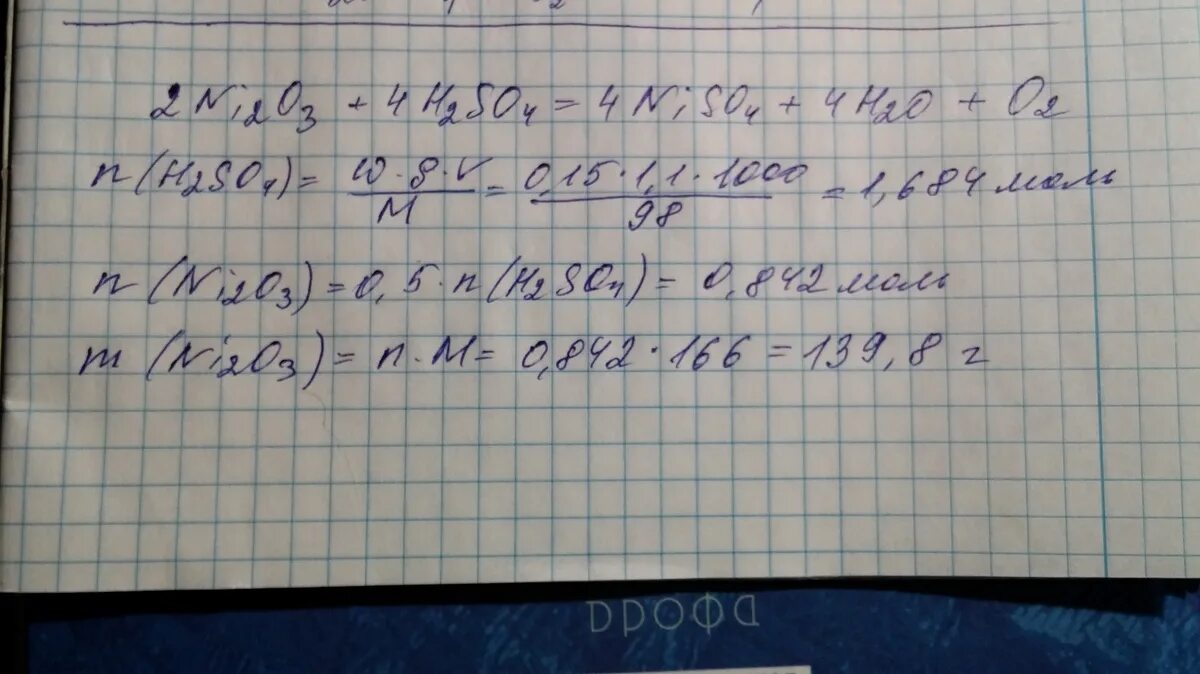 2Ni₂O₃ + 4H₂SO₄ = 4NiSO₄ + 4H₂O + O₂
n(H₂SO₄) = w·ρ·V / M = 0,15·1,1·1000 / 98 = 1,684 моль
n(Ni₂O₃) = 0,5·n(H₂SO₄) = 0,842 моль
m(Ni₂O₃) = n·M = 0,842·166 = 139,8 г
дрофа